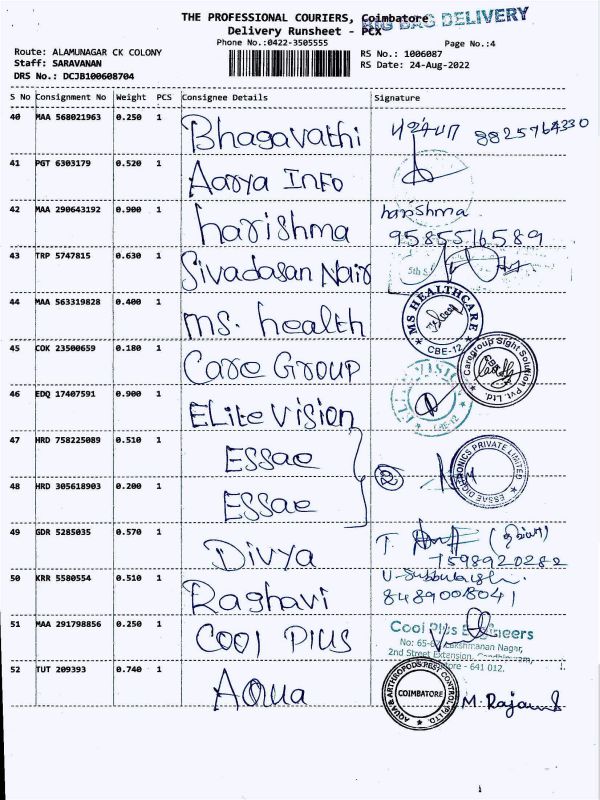 THE PROFESSIONAL COURIERS, Coimbatore
BIG BAG DELIVERY
Delivery Runsheet - PCX
Phone No.:0422-3505555
Page No.:4
Route: ALAMUNAGAR CK COLONY
Staff: SARAVANAN
DRS No.: DCJB100608704
RS No.: 1006087
RS Date: 24-Aug-2022
S No Consignment No Weight PCS Consignee Details Signature
40 MAA 568021963 0.250 1 Bhagavathi 8825764330
41 PGT 6303179 0.520 1 Aarya INFO
42 MAA 290643192 0.900 1 harishma harishma
9585516589
43 TRP 5747815 0.630 1 Sivadasan Nair
44 MAA 563319828 0.400 1 ms. health MS HEALTHCARE CBE-12
45 COK 23500659 0.180 1 Care Group Caregroup Sight Solution Pvt. Ltd.
46 EDQ 17407591 0.900 1 ELite Vision
47 HRD 758225089 0.510 1 ESSae 2 ESSAE DIGITRONICS PRIVATE LIMITED
48 HRD 305618903 0.200 1 ESSae
49 GDR 5285035 0.570 1 Divya
7598920282
50 KRR 5580554 0.510 1 Raghavi
8489008041
51 MAA 291798856 0.250 1 Cool Plus Cool Plus Engineers
Lakshmanan Nagar,
2nd Street Extension,
- 641 012.
52 TUT 209393 0.740 1 Aqua AQUA & ARTHROPODS PEST CONTROL (P) LTD. COIMBATORE